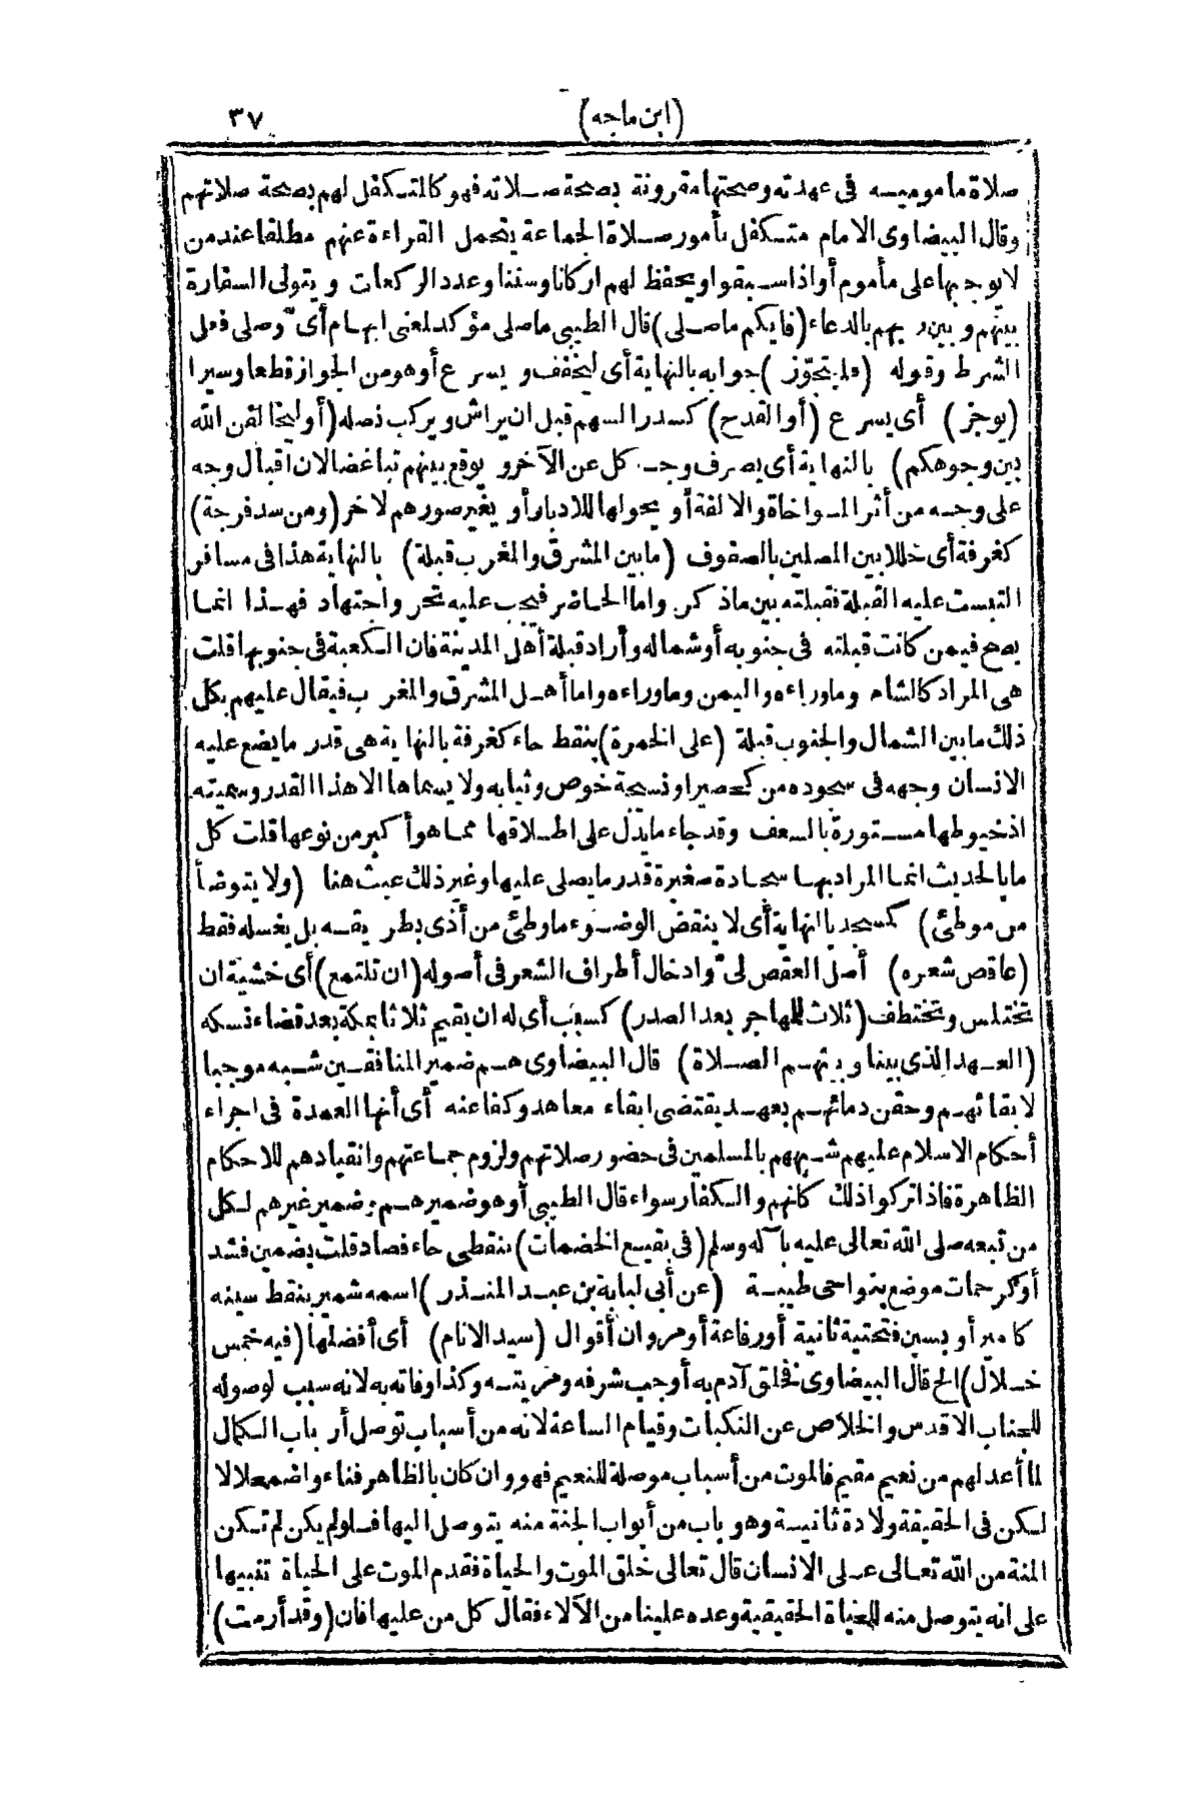 (ابن ماجه) ٣٧
صلاة ماموميه فى عهدته وصحتها مقرونة بصحة صلاته فهو كالمتكفل لهم بصحة صلاتهم
وقال البيضاوى الامام متكفل بأمور صلاة الجماعة يتحمل القراءة عنهم مطلقا عند من
لا يوجبها على مأموم أو اذا سبقوا ويحفظ لهم اركانا وسننا وعدد الركعات ويتولى السفارة
بينهم وبين ربهم بالدعاء (فايكم ماصلى) قال الطيبى ما صلى مؤكد لمعنى ابهام أى وصلى فعل
الشرط وقوله (فليتجوّز) جوابه بالنهاية أى ليخفف ويسرع أو هو من الجواز قطعا وسيرا
(يوجز) أى يسرع (أو القدح) كسدر السهم قبل ان يراش ويركب نصله (أو ليخالفن الله
بين وجوهكم) بالنهاية أى يصرف وجه كل عن الآخر ويوقع بينهم تباغضا لان اقبال وجه
على وجه من أثر المواخاة والالفة أو يحولها للادبار أو يغير صورهم لاخر (ومن سد فرجة)
كغرفة أى خللا بين المصلين بالصفوف (مابين المشرق والمغرب قبلة) بالنهاية هذا فى مسافر
التبست عليه القبلة فقبلته بين ماذكر واما الحاضر فيجب عليه تحر واجتهاد فهذا انما
يصح فيمن كانت قبلته فى جنوبه أو شماله وأراد قبلة أهل المدينة فان الكعبة فى جنوبها قلت
هى المراد كالشام وما وراءه واليمن وما وراءه واما أهل المشرق والمغرب فيقال عليهم بكل
ذلك مابين الشمال والجنوب قبلة (على الخمرة) بنقط خاء كغرفة بالنهاية هى قدر ما يضع عليه
الانسان وجهه فى سجوده من كحصير او نسيجة خوص وثيابه ولا يسماها الا هذا القدر وسميته
اذ خيوطها مستورة بالسعف وقد جاء ما يدل على اطلاقها مما هو أكبر من نوعها قلت كل
ما بالحديث انما المراد بها سجادة صغيرة قدر ما يصلى عليها وغير ذلك عبث هنا (ولا يتوضأ
من موطئ) كمسجد بالنهاية أى لا ينقض الوضوء ما وطئ من أذى بطريقه بل يغسله فقط
(عاقص شعره) أصل العقص لى وادخال أطراف الشعر فى أصوله (ان تلتمع) أى خشية ان
تختلس وتختطف (ثلاث للمهاجر بعد الصدر) كسبب أى له ان يقيم ثلاثا بمكة بعد قضاء نسكه
(العهد الذى بيننا وبينهم الصلاة) قال البيضاوى هم ضمير المنافقين شبه موجبا
لابقائهم وحقن دمائهم بعهد يقتضى ابقاء معاهد وكفا عنه أى أنها العمدة فى اجراء
أحكام الاسلام عليهم شبههم بالمسلمين فى حضور صلاتهم ولزوم جماعتهم وانقيادهم للاحكام
الظاهرة فاذا تركوا ذلك كانهم والكفار سواء قال الطيبى أو هو ضمير هم بضمير غيرهم لكل
من تبعه صلى الله تعالى عليه بآله وسلم (فى بقيع الخضمات) بنقطى خاء فصاد قلت بضمين فشد
أو كرحمات موضع بنواحى طيبة (عن أبى لبابة بن عبد المنذر) اسمه شمير بنقط سينه
كامير أو بسين فتحتية ثانية أو رفاعة أو مروان أقوال (سيد الانام) أى أفضلها (فيه خمس
خلال) الخ قال البيضاوى فخلق آدم به أوجب شرفه ومزيته وكذا وفاته به لانه سبب لوصوله
للجناب الاقدس والخلاص عن النكبات وقيام الساعة لانه من أسباب توصل أرباب الكمال
لما أعد لهم من نعيم مقيم فالموت من أسباب موصلة للنعيم فهو وان كان بالظاهر فناء واضمحلالا
لكن فى الحقيقة ولادة ثانية وهو باب من أبواب الجنة منه يتوصل اليها فلو لم يكن لم تكن
المنة من الله تعالى على الانسان قال تعالى خلق الموت والحياة فقدم الموت على الحياة تنبيها
على انه يتوصل منه للحياة الحقيقية وعده علينا من الآلاء فقال كل من عليها فان (وقد أرمت)